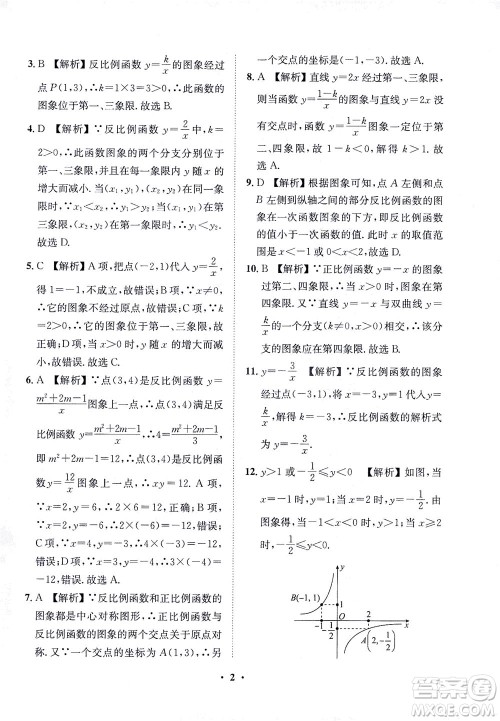 3. B 【解析】∵反比例函数 y=k/x 的图象经过
点 P(1,3),∴k=1×3=3>0,∴此函数的
图象位于第一、三象限.故选 B.
4. D 【解析】∵反比例函数 y=2/x 中,k=
2>0,∴此函数图象的两个分支分别位于
第一、三象限,并且在每一象限内,y 随 x 的
增大而减小.当(x₁,y₁),(x₂,y₂)在同一象
限时,∵x₁<x₂,∴y₁>y₂;当不在同一象
限时,∵x₁<0<x₂,∴y₁<y₂.故选 D.
5. C 【解析】A 项,把点(-2,1)代入 y=2/x,
得 1=-1,不成立,故错误;B 项,∵x≠0,
∴它的图象不经过原点,故错误;C 项,
∵k=2>0,∴它的图象在第一、三象限,故
正确;D 项,在每个象限内,y 随 x 的增大而
减小,故错误.故选 C.
6. A 【解析】∵点(3,4)是反比例函数 y=
(m²+2m-1)/x 图象上一点,∴点(3,4)满足反
比例函数 y=(m²+2m-1)/x,∴4=(m²+2m-1)/3,
即 m²+2m-1=12,∴点(3,4)是反比例函
数 y=12/x 图象上的点,∴xy=12.A 项,
∵x=2,y=6,∴2×6=12,正确;B 项,
∵x=2,y=-6,∴2×(-6)=-12,错误;
C 项,∵x=4,y=-3,∴4×(-3)=-12,
错误;D 项,∵x=3,y=-4,∴3×(-4)=
-12,错误.故选 A.
7. A 【解析】∵反比例函数和正比例函数的
图象都是中心对称图形,∴正比例函数与
反比例函数的图象的两个交点关于原点对
称.∵一个交点的坐标为 A(3,2),∴另
一个交点的坐标是(-3,-2).故选 A.
8. A 【解析】∵直线 y=2x 经过第一、三象
限,y=(1-k)/x 的图象与直线 y=2x 没有交
点,∴函数 y=(1-k)/x 的图象位于第二、
四象限,∴1-k<0,解得 k>1.故选 A.
9. D 【解析】根据图象可知,点 A 右侧和点
B 左侧以及纵轴之间的部分反比例函数的图
象在一次函数图象的下方,即反比例函数
的值小于一次函数的值,此时 x 的取值范
围是 x<-1 或 0<x<2.故选 D.
10. B 【解析】∵正比例函数 y=-x 的图象
过第二、四象限且经过原点,又∵在第二
象限时,直线 y=-x 与双曲线 y=
k/x(k≠0)有公共点,∴反比例函数 y=
k/x 的图象在第四象限.故选 B.
11. y=-3/x 【解析】∵反比例函数 y=k/x 的
图象经过点(-3,1),∴1=k/(-3),解得
k=-3,∴反比例函数的解析式
为 y=-3/x.
12. y>1 或 -1/2≤y<0 【解析】如图,当
x=-1 时,y=1;当 x=2 时,y=-1/2.由
图象得,当 -1<x<0 时,y>1;当 x≥2
时,-1/2≤y<0.
y
B(-1,1)
1
-1
O
2
x
A(2,-1/2)
· 2 ·
作业帮答案
MXQE.COM